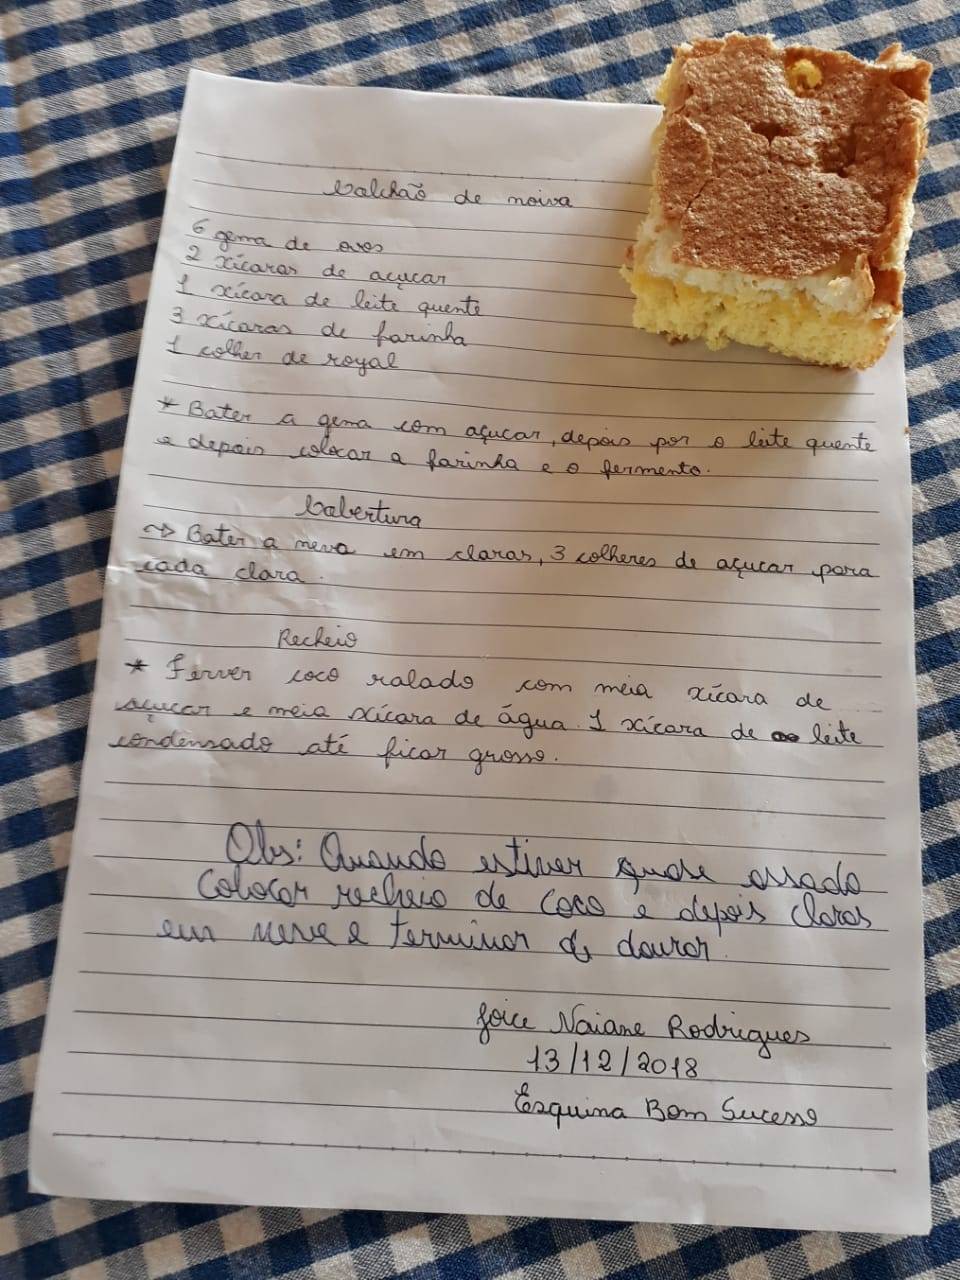 Colchão de noiva
6 gema de ovos
2 xícaras de açucar
1 xícara de leite quente
3 xícaras de farinha
1 colher de royal
* Bater a gema com açucar, depois por o leite quente
e depois colocar a farinha e o fermento.
Cobertura
~> Bater a neva em claras, 3 colheres de açucar para
cada clara.
Recheio
* Ferver coco ralado com meia xícara de
açucar e meia xícara de água. 1 xícara de leite
condensado até ficar grosso.
Obs: Quando estiver quase assado
Colocar recheio de coco e depois claras
em neve e terminar de dourar.
Joice Naiane Rodrigues
13/12/2018
Esquina Bom Sucesso